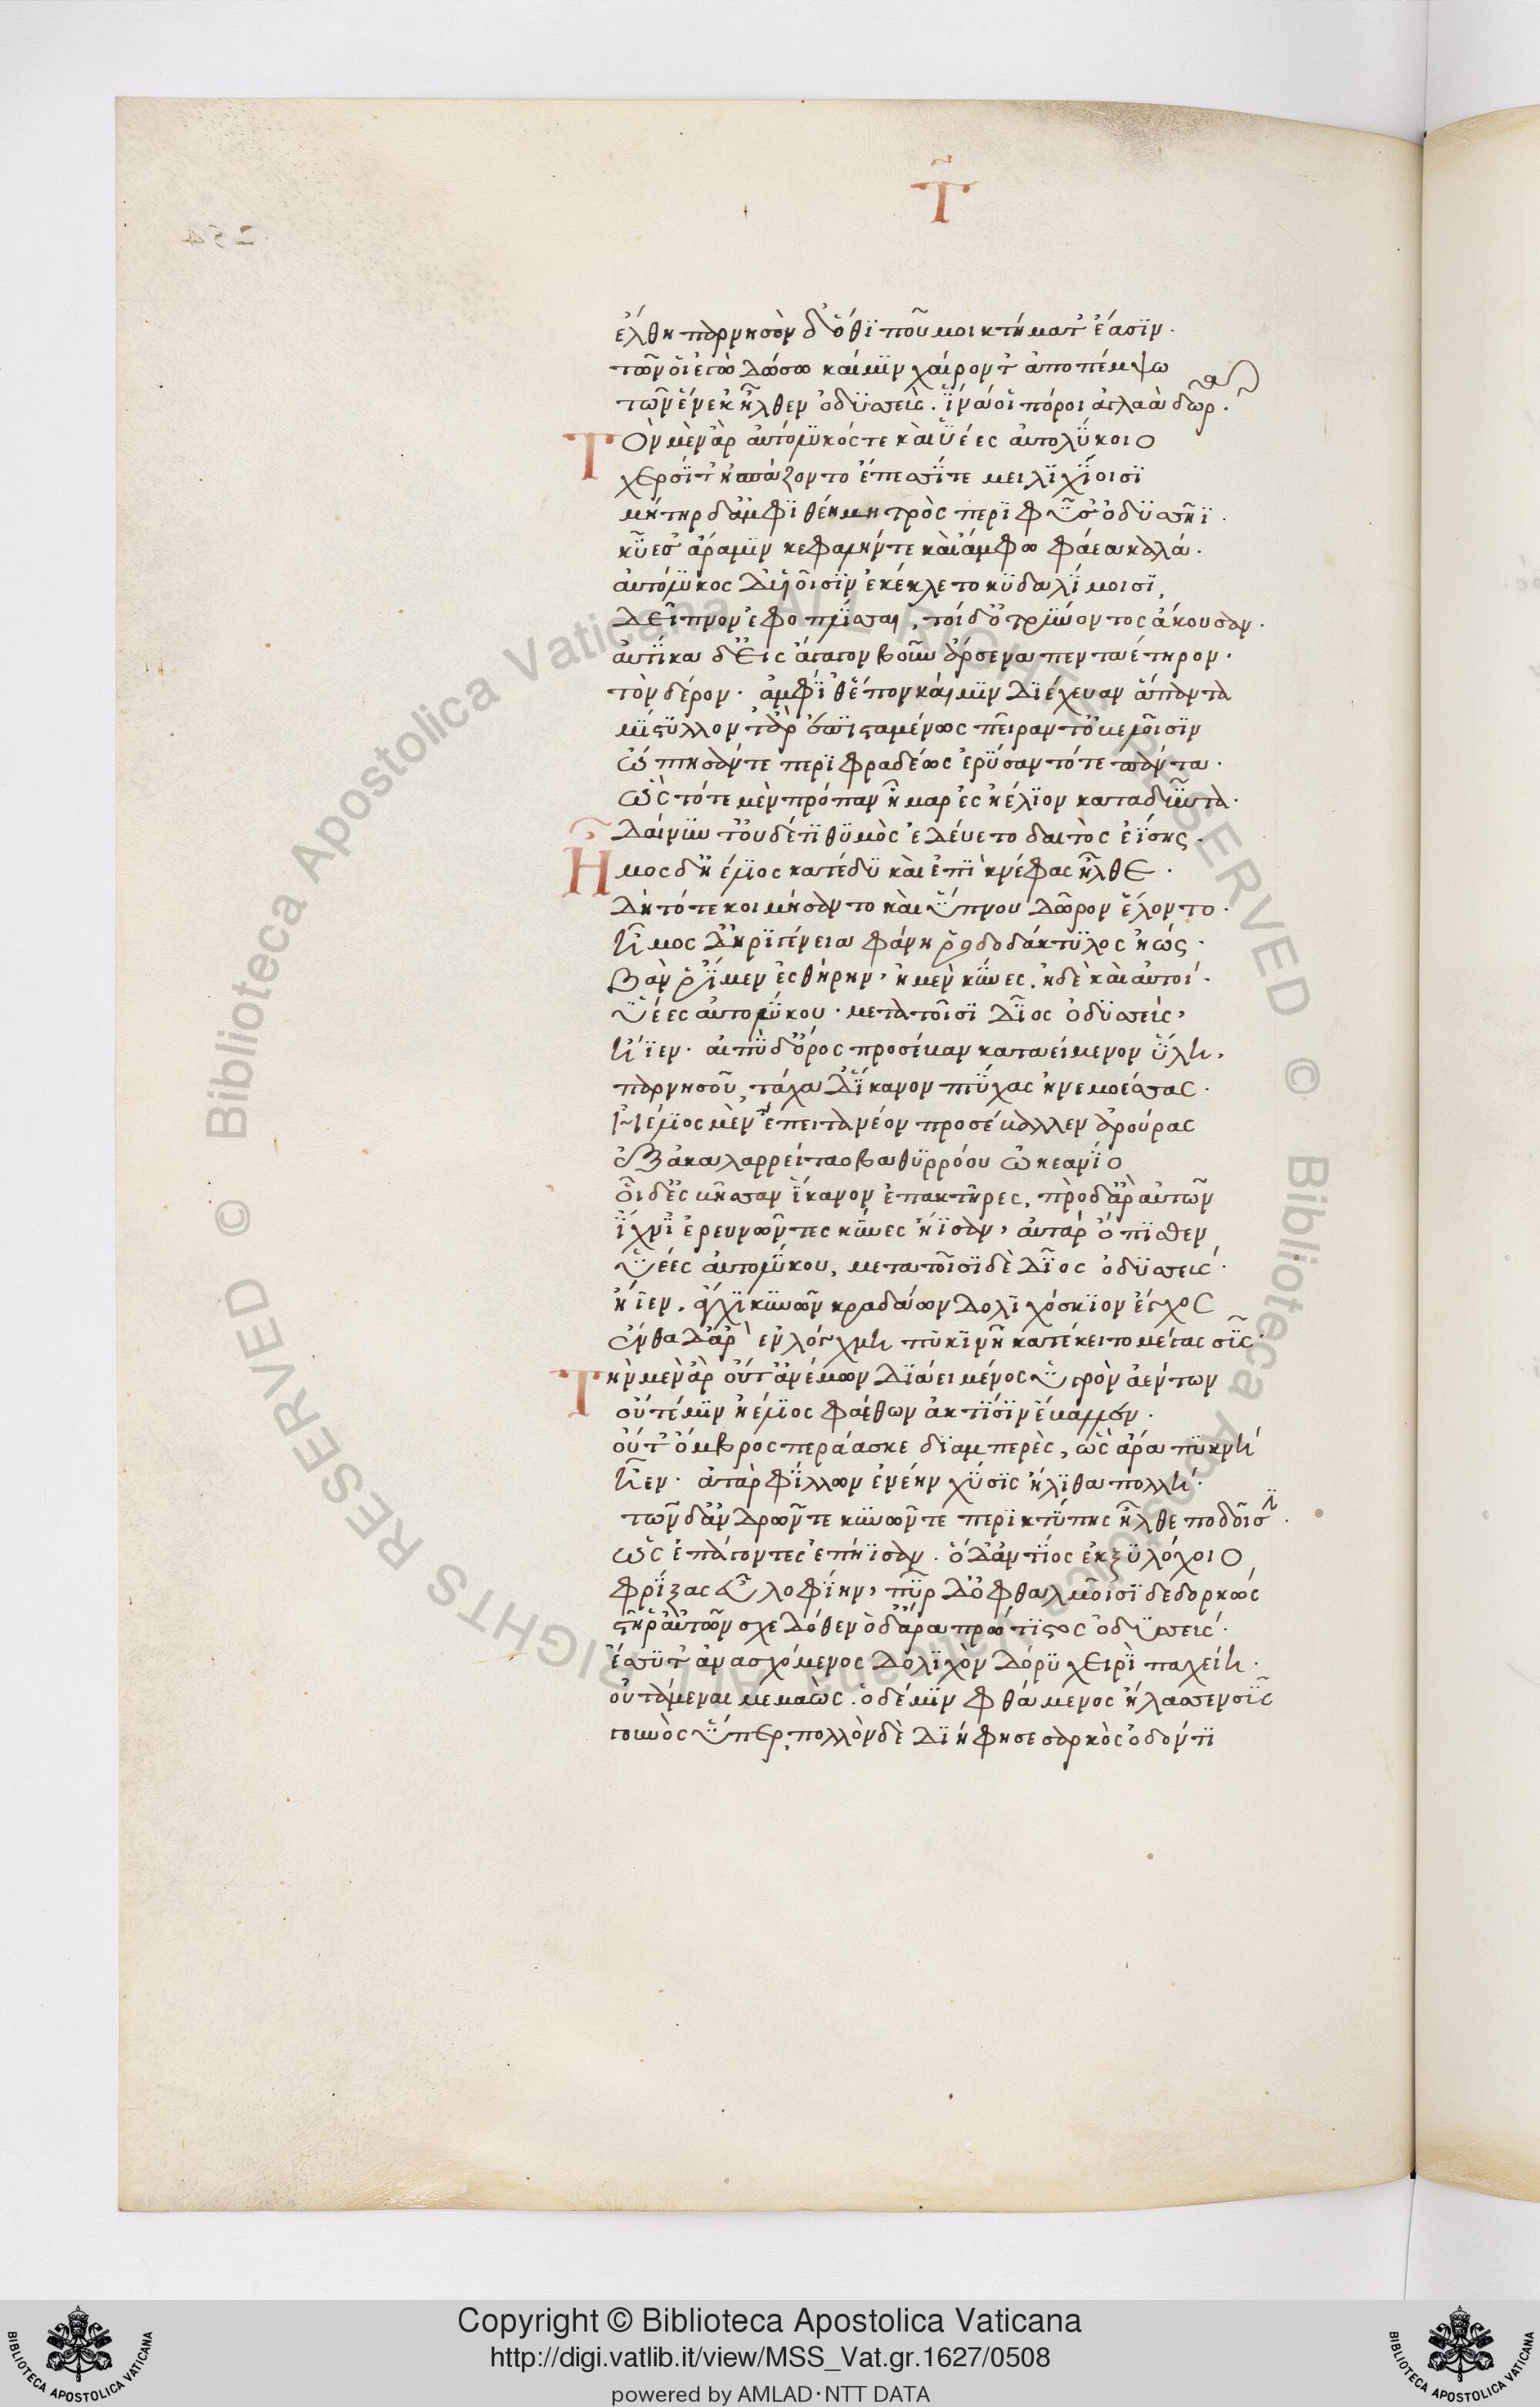 Τ
254
ἔλθη παρνησὸν δ' ὅθι ποῦ μοι κτήματ' ἔασιν.
τῶν οἱ ἐγὼ δώσω καί μιν χαίροντ' ἀποπέμψω
τῶν ἕνεκ' ἦλθεν ὀδυσσεύς. ἵνα οἱ πόροι ἀγλαὰ δῶρα.
Τὸν μὲν ἂρ αὐτόλυκός τε καὶ υἱέες αὐτολύκοιο
χερσίτ' ἠσπάζοντο ἔπεσσί τε μειλιχίοισι
μήτηρ δ' ἀμφιθέη μητρὸς περιφῦσ' ὀδυσσῆϊ.
κύσσ' ἄρα μιν κεφαλήν τε καὶ ἄμφω φάεα καλά.
αὐτόλυκος δ' υἱοῖσιν ἐκέκλετο κυδαλίμοισι,
δεῖπνον ἐφοπλίσσαι, τοὶ δ' ὀτρύνοντος ἄκουσαν.
αὐτίκα δ' εἰς ἄγαγον βοῦν ἄρσενα πενταέτηρον.
τὸν δέρον. ἀμφί θ' ἕπον καί μιν διέχευαν ἅπαντα
μίστυλλόν τ' ἂρ ἐπισταμένως πεῖράν τ' ὀβελοῖσιν
ὤπτησάν τε περιφραδέως ἐρύσαντό τε πάντα.
ὣς τότε μὲν πρόπαν ἦμαρ ἐς ἠέλιον καταδύντα.
δαίνυντ' οὐδέ τι θυμὸς ἐδεύετο δαιτὸς ἐΐσης.
Ἦμος δ' ἠέλιος κατέδυ καὶ ἐπὶ κνέφας ἦλθε.
δὴ τότε κοιμήσαντο καὶ ὕπνου δῶρον ἕλοντο.
ἦμος δ' ἠριγένεια φάνη ῥοδοδάκτυλος ἠώς.
βάν ῥ' ἴμεν ἐς θήρην, ἠμὲν κύνες, ἠδὲ καὶ αὐτοί.
υἱέες αὐτολύκου. μετὰ τοῖσι δῖος ὀδυσσεύς,
ἤϊεν. αἰπὺ δ' ὄρος προσέβαν καταειμένον ὕλη,
παρνησοῦ, τάχα δ' ἵκανον πτύχας ἠνεμοέσσας.
ἠέλιος μὲν ἔπειτα νέον προσέβαλλεν ἀρούρας
ἐξ ἀκαλαρρείταο βαθυρρόου ὠκεανοῖο
οἱ δ' ἐς βῆσσαν ἵκανον ἐπακτῆρες, πρὸ δ' ἂρ αὐτῶν
ἴχνι' ἐρευνῶντες κύνες ἤϊσαν, αὐτὰρ ὄπισθεν
υἱέες αὐτολύκου, μετὰ τοῖσι δὲ δῖος ὀδυσσεύς.
ἤϊεν. ἄγχι κυνῶν κραδάων δολιχόσκιον ἔγχος
ἔνθα δ' ἂρ ἐν λόχμη πυκινῆ κατέκειτο μέγας σῦς.
Τὴν μὲν ἂρ οὔτ' ἀνέμων διάει μένος ὑγρὸν ἀέντων
οὔτέ μιν ἠέλιος φαέθων ἀκτῖσιν ἔβαλλεν.
οὔτ' ὄμβρος περάασκε διαμπερές, ὣς ἄρα πυκνὴ
ἦεν. ἀτὰρ φύλλων ἐνέην χύσις ἤλιθα πολλή.
τῶν δ' ἀνδρῶν τε κυνῶν τε περὶ κτύπης ἦλθε ποδοῖσιν.
ὡς ἐπάγοντες ἐπήϊσαν. ὁ δ' ἀντίος ἐκ ξυλόχοιο
φρίξας εὖ λοφίην, πῦρ δ' ὀφθαλμοῖσι δεδορκώς
στῆ ῥ' αὐτῶν σχεδόθεν ὁ δ' ἄρα πρώτιστος ὀδυσσεύς.
ἔσσυτ' ἀνασχόμενος δολιχὸν δόρυ χειρὶ παχείη.
οὐτάμεναι μεμαώς. ὁ δέ μιν φθάμενος ἤλασσεν σῦς
γουνὸς ὕπερ, πολλὸν δὲ διήφησε σαρκὸς ὀδόντι
Copyright © Biblioteca Apostolica Vaticana
http://digi.vatlib.it/view/MSS_Vat.gr.1627/0508
powered by AMLAD·NTT DATA
BIBLIOTECA APOSTOLICA VATICANA
BIBLIOTECA APOSTOLICA VATICANA
© Biblioteca Apostolica Vaticana ALL RIGHTS RESERVED
© Biblioteca Apostolica Vaticana ALL RIGHTS RESERVED